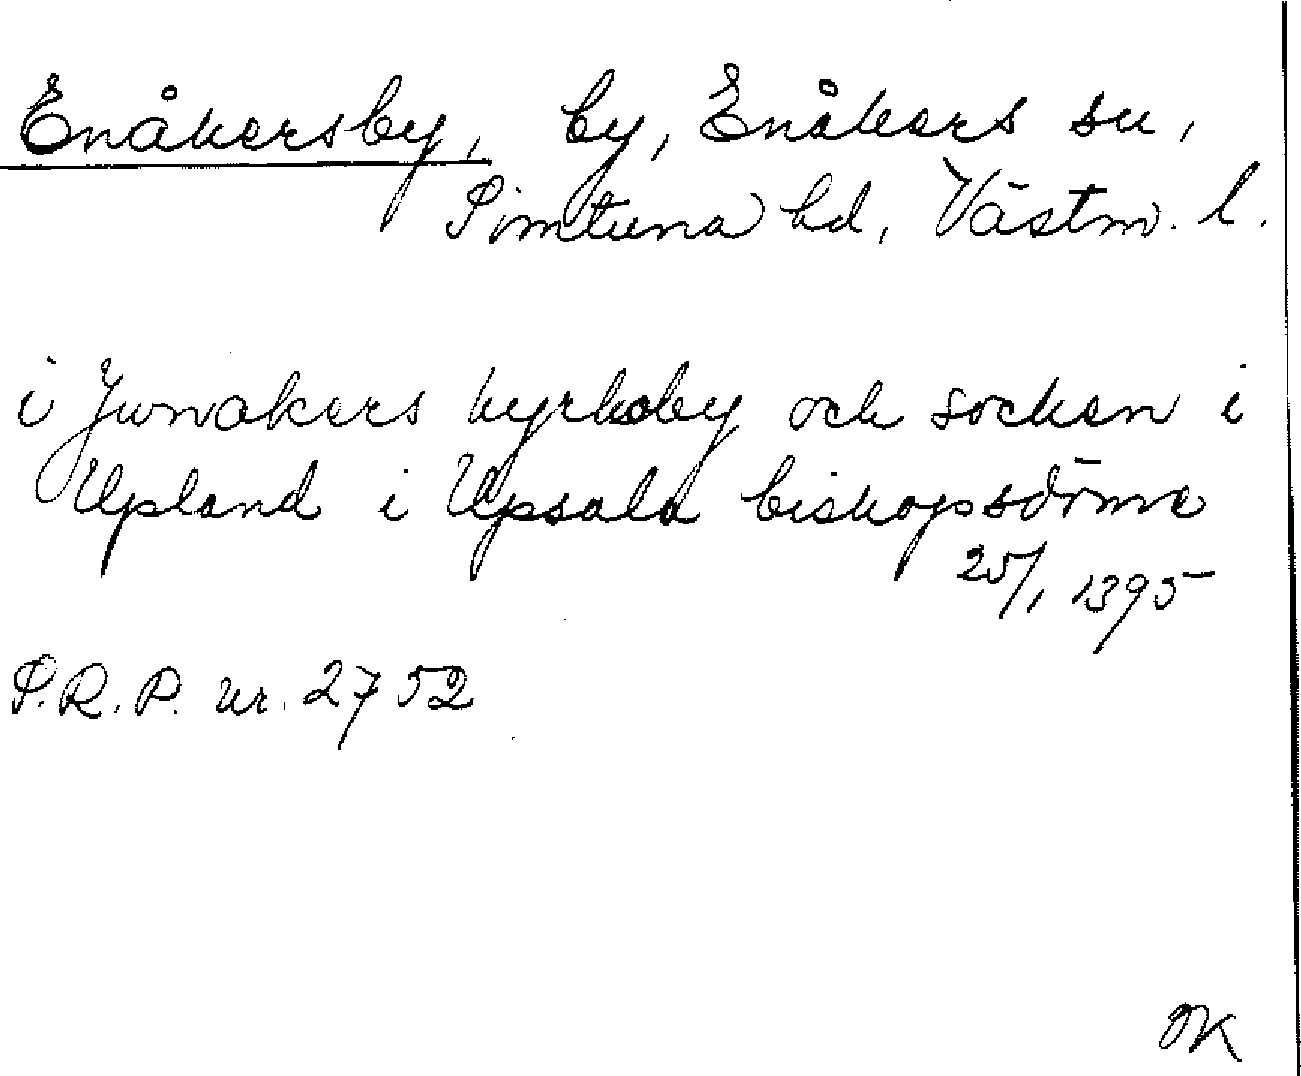 Enåkersby, by, Enåkers sn,
Simtuna hd, Västm. l.
i Jwnakers kyrkoby och socken i
Upland i Upsala biskopsdöme
25/1 1395
S.R.P. nr. 2752
OK